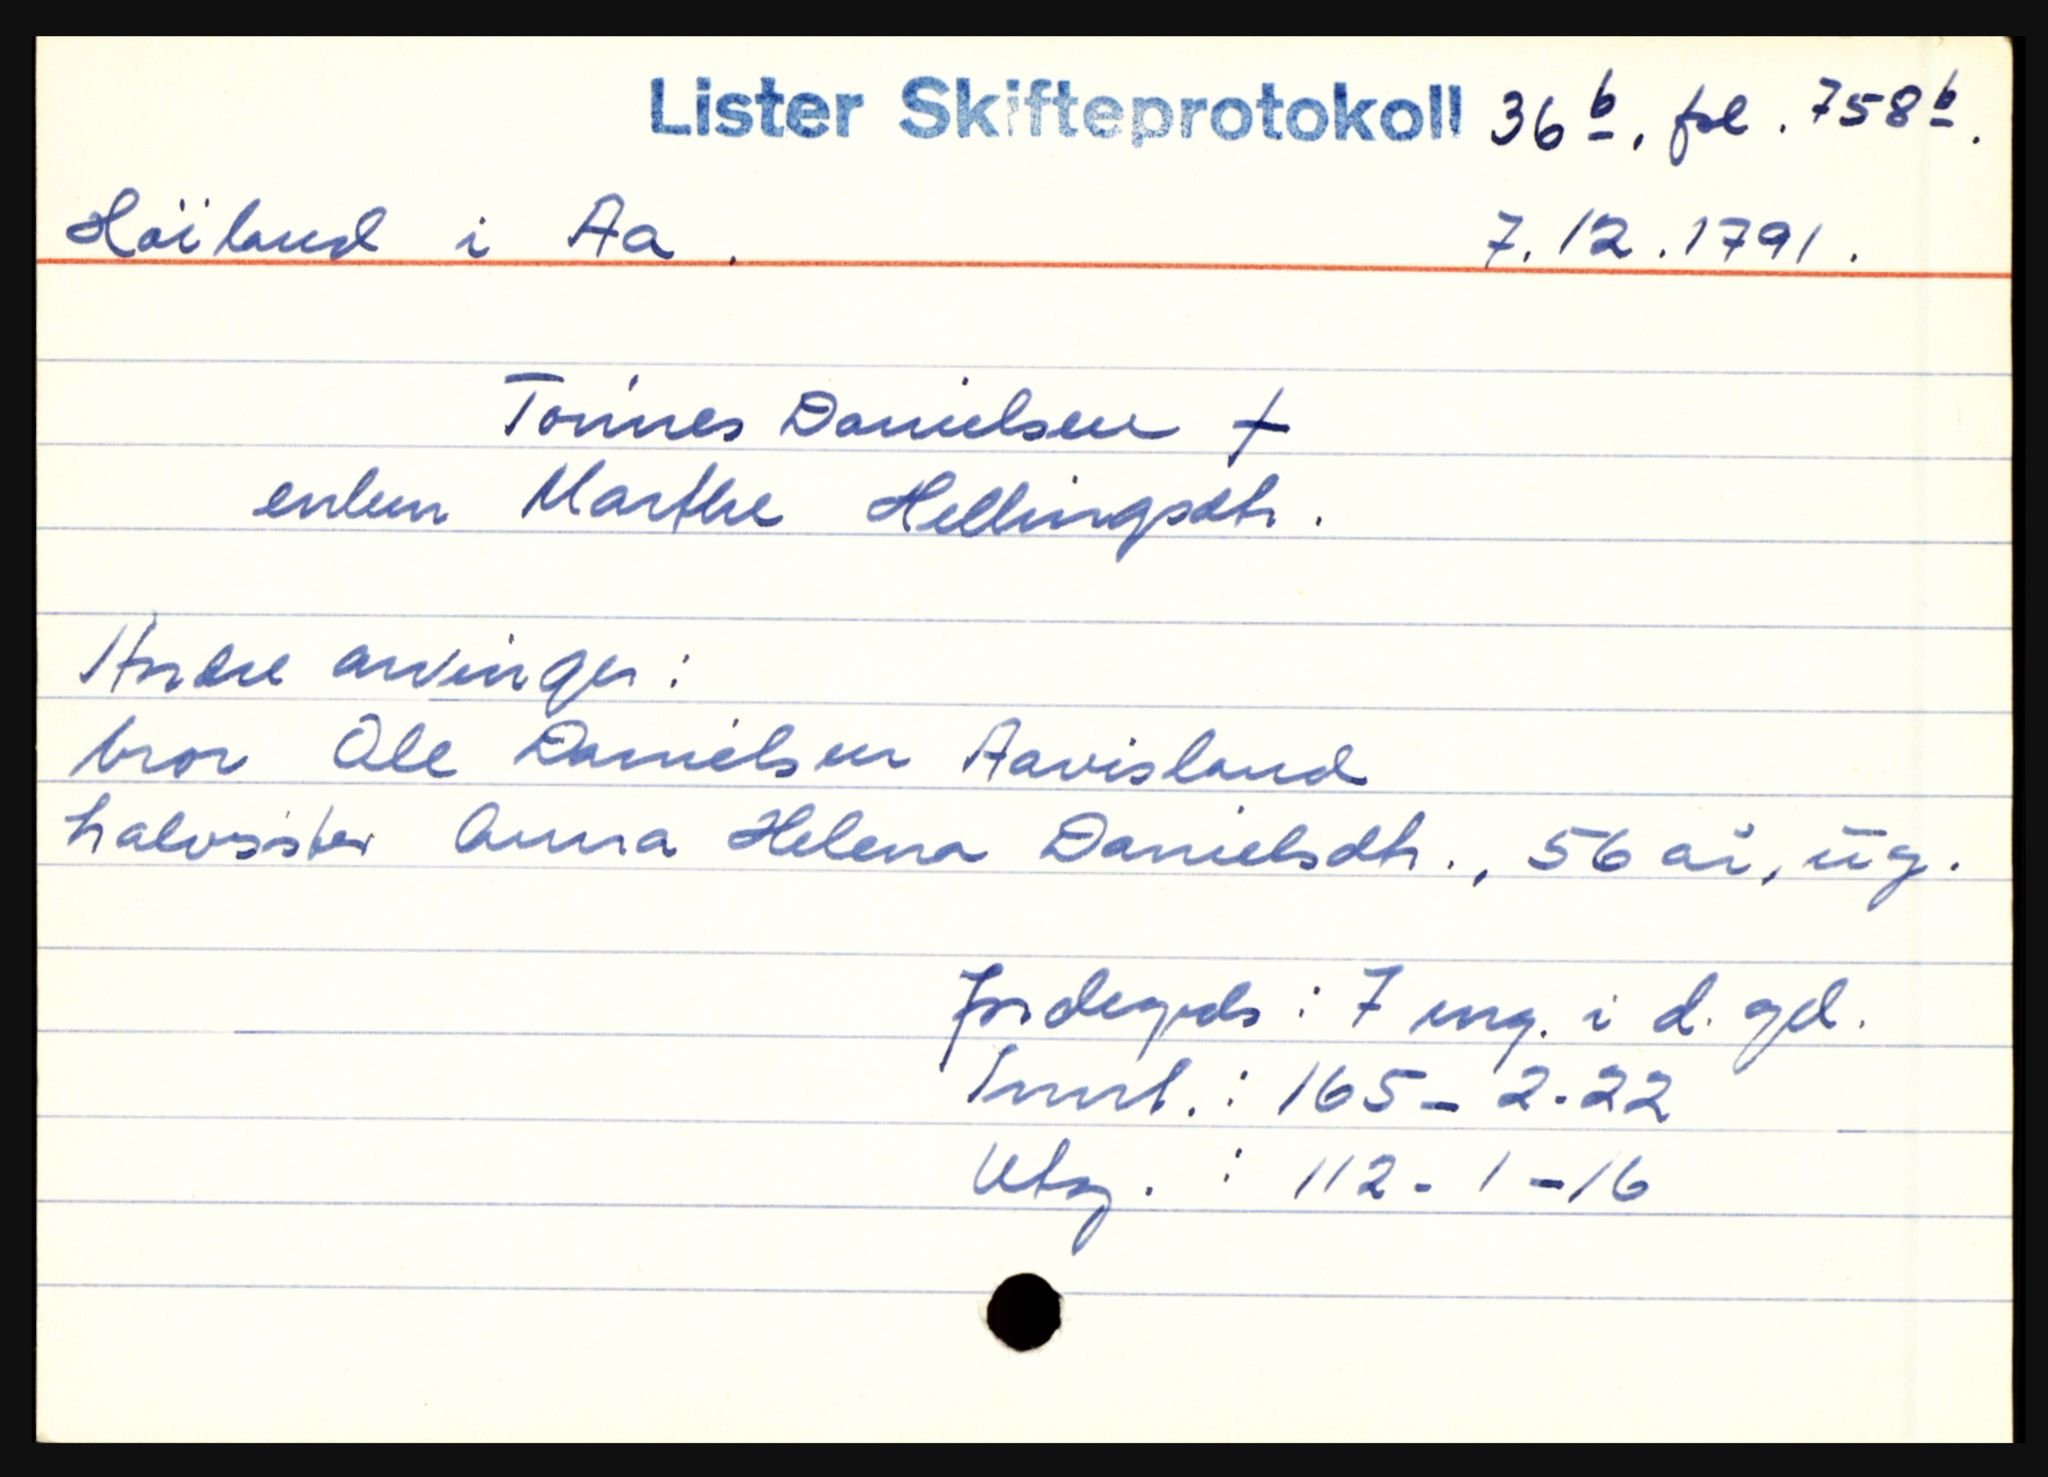 Lister Skifteprotokoll 36 b, fol. 758 b.
Höiland i Aa. 7.12.1791.
Tönnes Danielsen †
enken Marthe Hellingsdtr.
Andre arvinger:
bror Ole Danielsen Aavisland
halvsister Anna Helena Danielsdtr., 56 år, ug.
Jordegods: 7 eng. i d. gd.
Innt.: 165 - 2 - 22
Utg.: 112 - 1 - 16